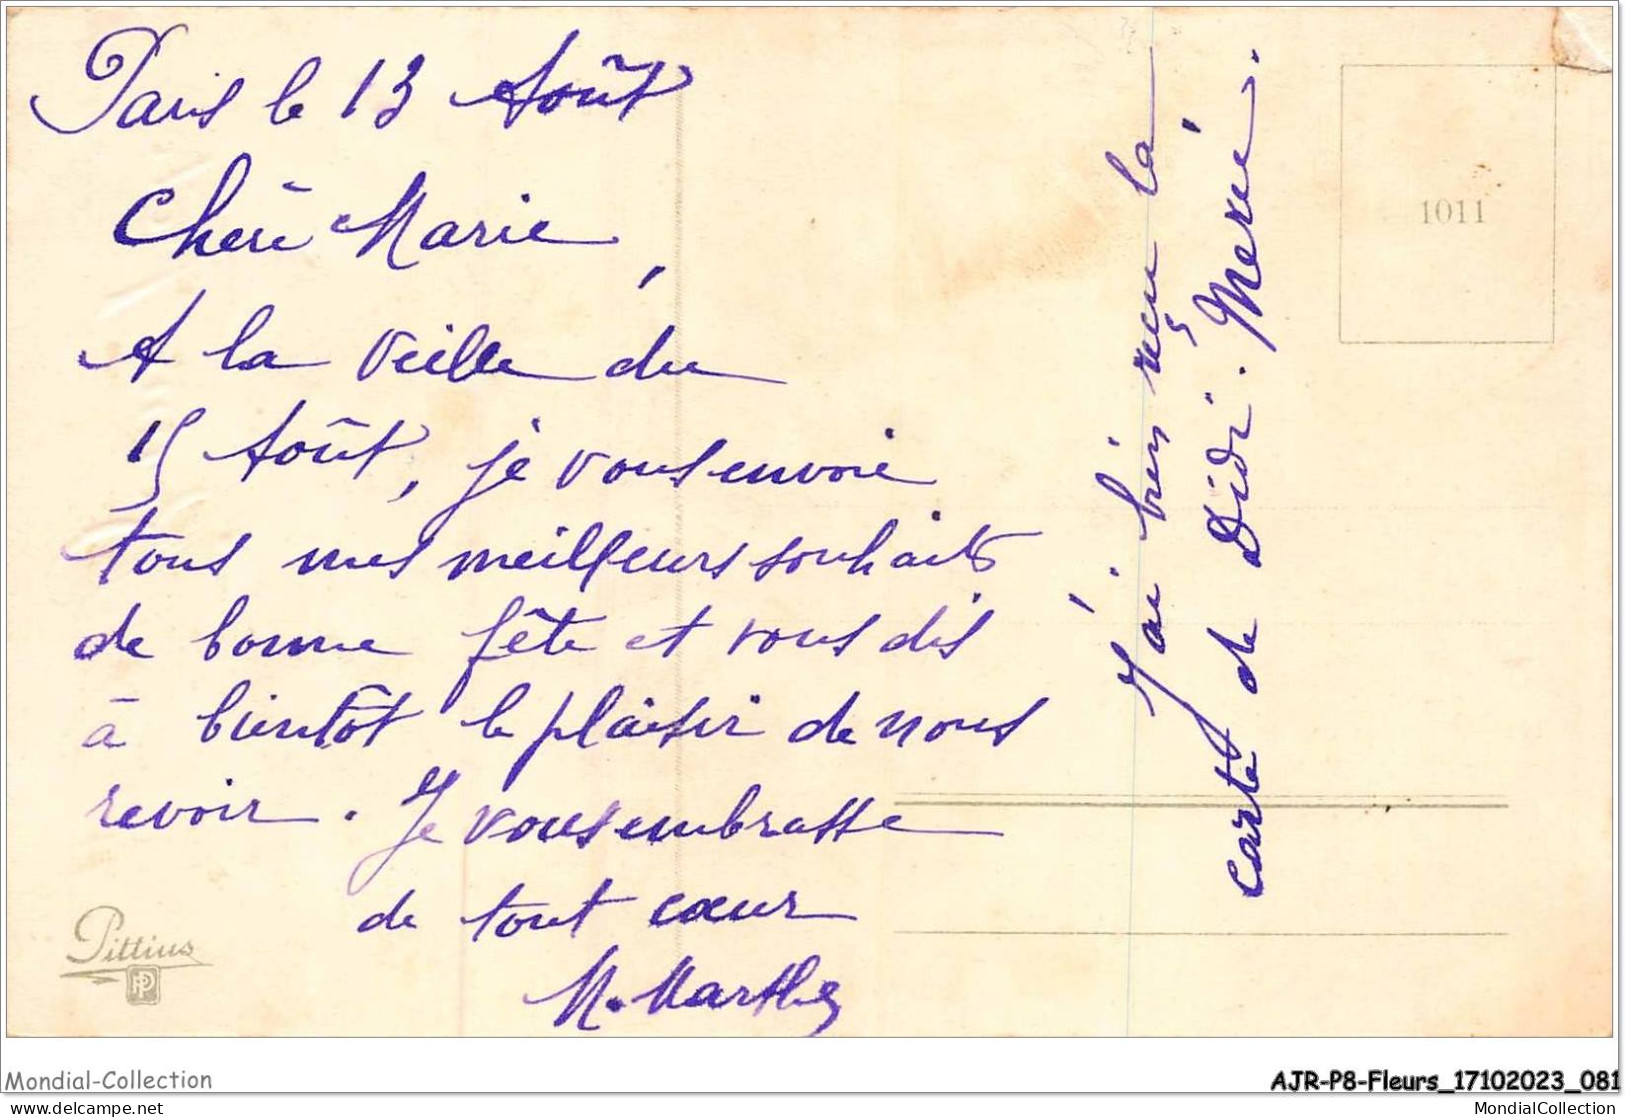 Paris le 13 Août
Chère Marie,
A la veille du
15 Août, je vous envoie
tous mes meilleurs souhaits
de bonne fête et vous dis
à bientôt le plaisir de nous
revoir. Je vous embrasse
de tout cœur
M. Marthe
J'ai bien reçu la
carte de Didi. Merci.
1011
Pittius
PP
Mondial-Collection
AJR-P8-Fleurs_17102023_081
delcampe.net
MondialCollection